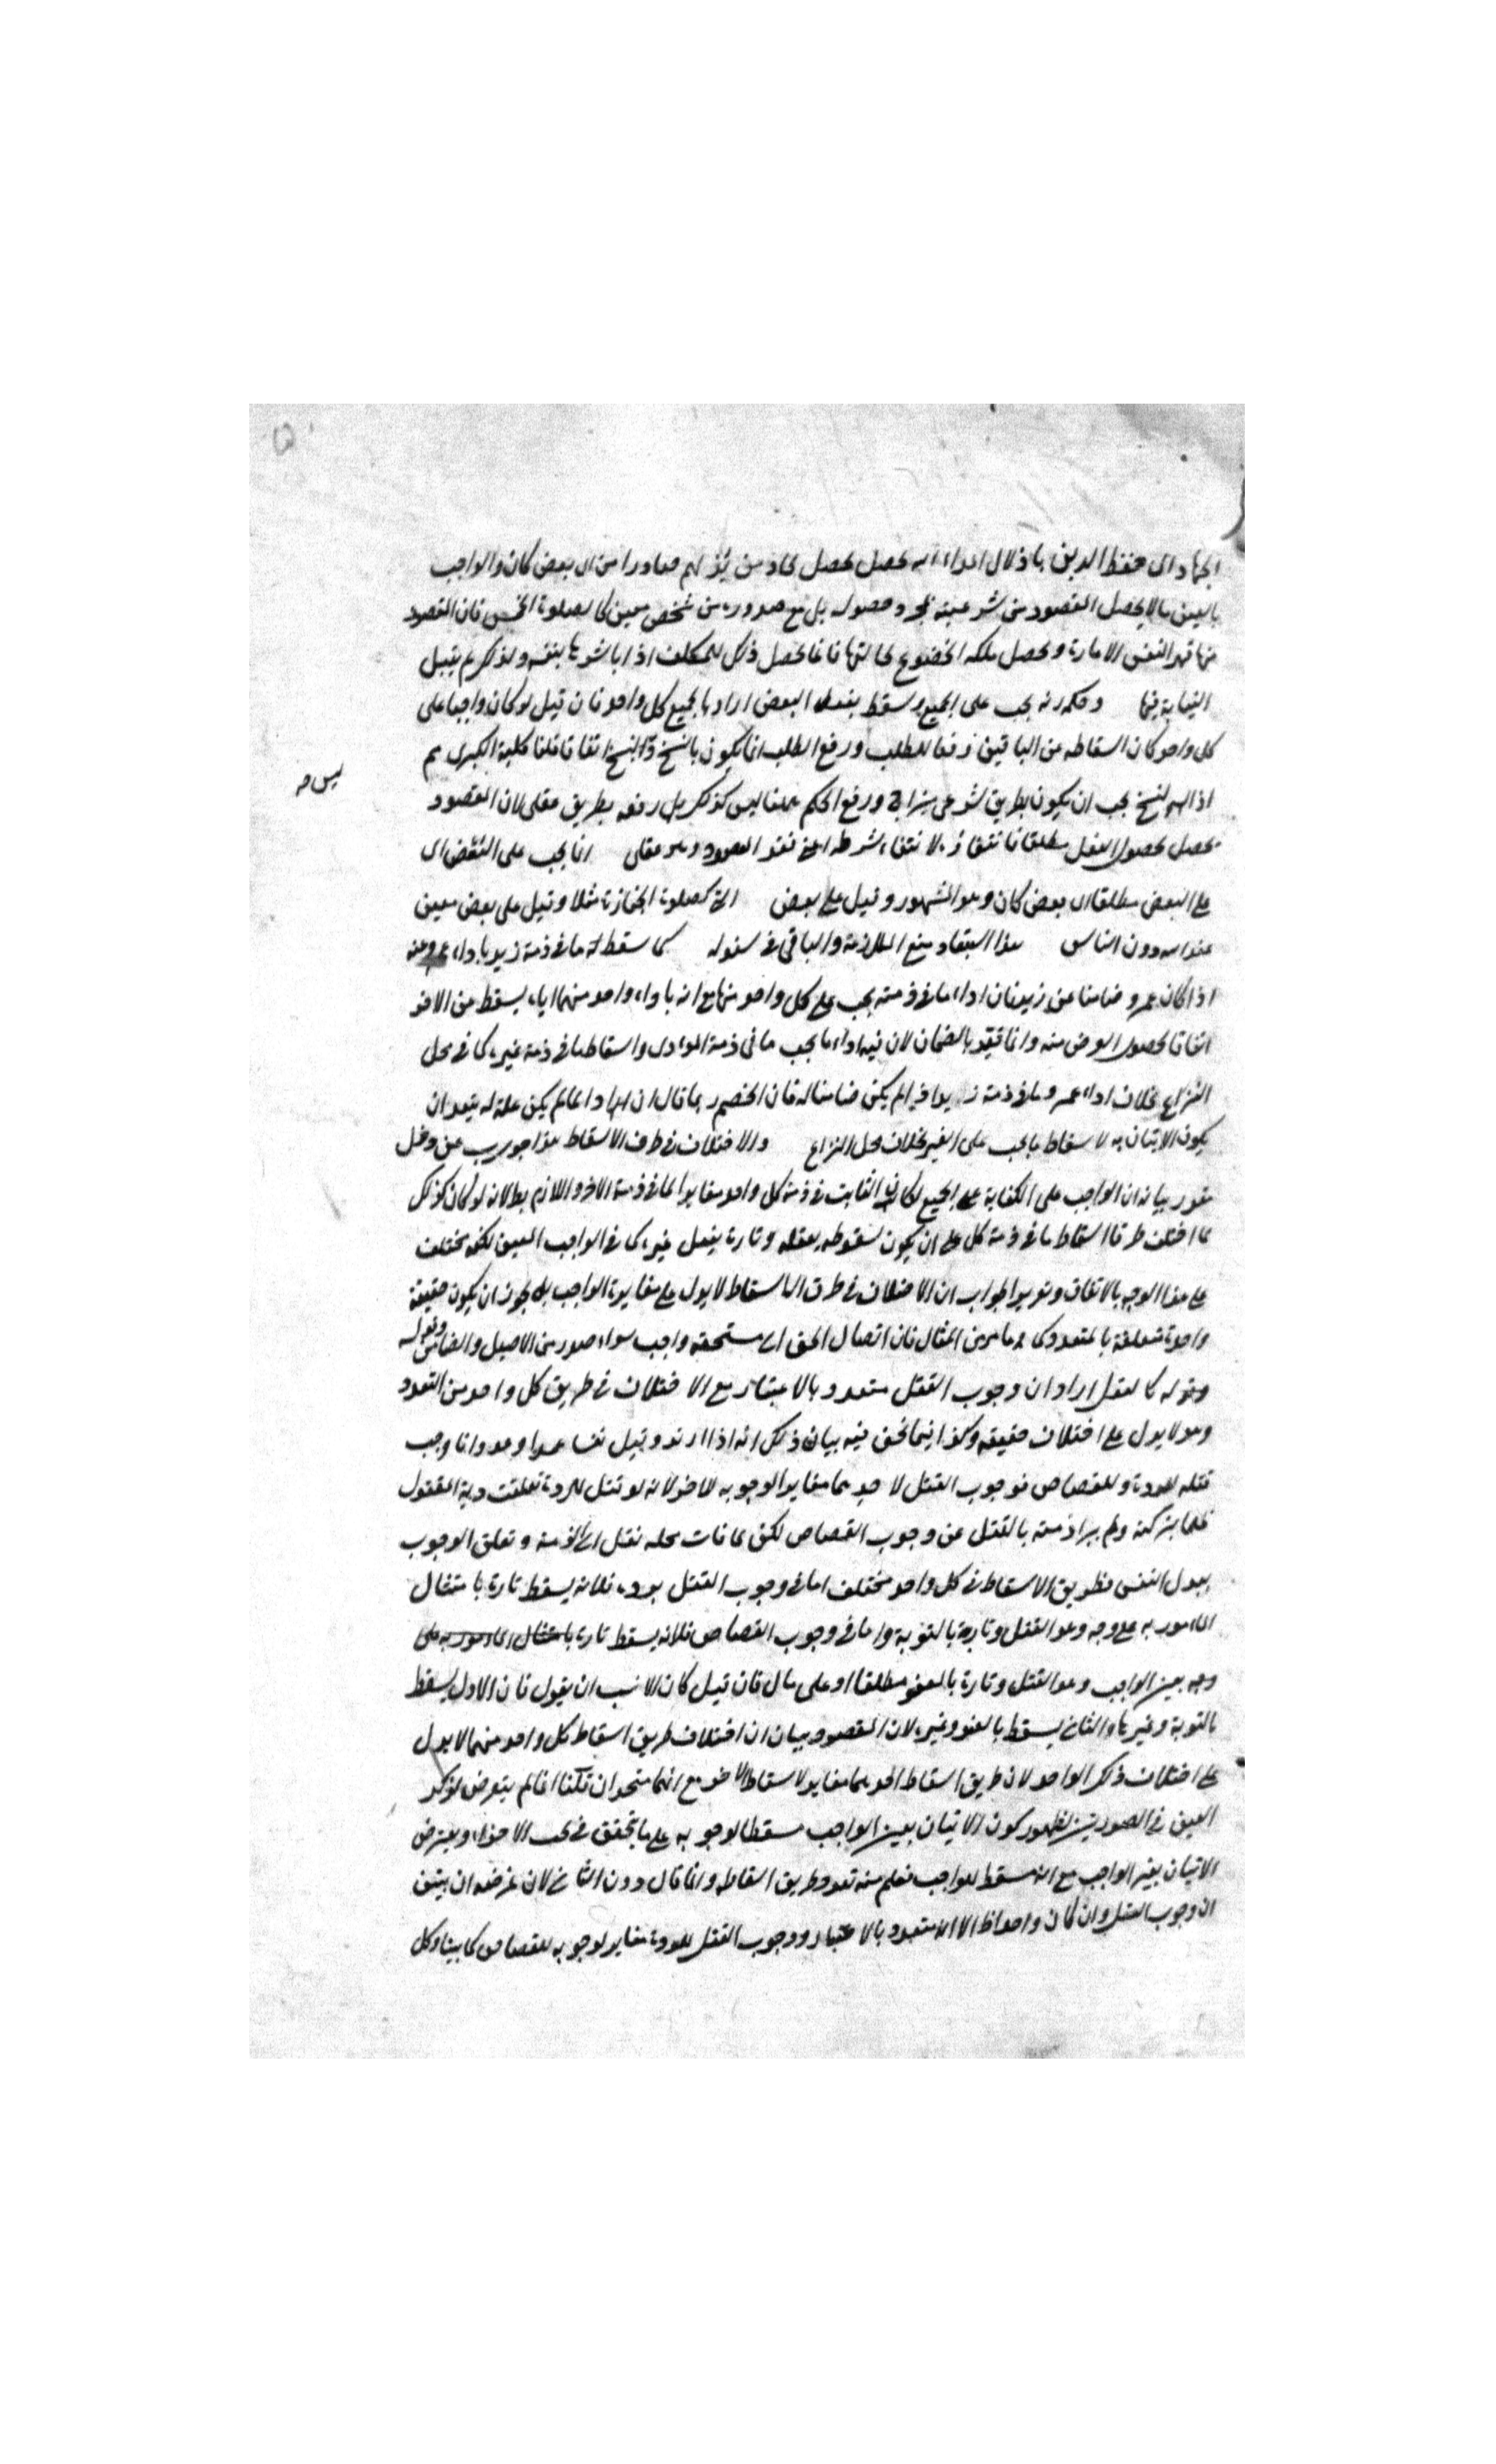 الجهاد اى حفظ الدين باذلال اعداء الله يحصل بحصل محاد من يؤ لهم صادرا من اى بعض كان والواجب
بالعين ما لا يحصل المقصود من شرعيته بمجرد حصوله بل مع صدوره من شخص معين كالصلوة الخمس فان المقصود
منها قهر النفس الامارة وتحصيل ملكة الخضوع لخالقها فانما يحصل ذلك للمكلف اذا باشرها بنفسه ولذلك لم يقبل
النيابة فيها وحكمه انه يجب على الجميع ويسقط بفعل البعض اراد بالجميع كل واحد فان قيل لو كان واجبا على
كل واحد كان اسقاطه عن الباقين رفعا للطلب ورفع الطلب انما يكون بالنسخ ولا نسخ اتفاقا قلنا كلية الكبرى مم
اذ النسخ يجب ان يكون بطريق شرعى متراخ ورفع الحكم مطلقا ليس كذلك بل رفعه بطريق عقلى لان المقصود
ليس صـ
يحصل بحصول الفعل مطلقا فانتفاؤه لانتفاء شرطه اعنى فقد المقصود وهو عقلى انما يجب على البعض اى
على البعض مطلقا اى بعض كان وهو المشهور وقيل على بعض الخ كصلوة الجنازة مثلا وقيل على بعض معين
عند الله دون الناس هذا استبعاد منع الملازمة والباقى فى سنده كما سقط له ما فى ذمة زيد باداء عمرو عنه
اذا كان عمرو ضامنا عن زيد فان اداء ما فى ذمته يجب على كل واحد منهما مع انه باداء واحد منهما اياه يسقط عن الاخر
اتفاقا لحصول الغرض منه وانما قيد بالضمان لان فيه اداء ما يجب ما فى ذمة المؤدى واسقاط ما فى ذمة غيره كما فى محل
النزاع بخلاف اداء عمرو ما فى ذمة زيد اذا لم يكن ضامنا له فان الخصم ربما قال ان المراد انما لم يكن علة له يتعد ان
يكون الاتيان به لاسقاط ما يجب على الغير بخلاف محل النزاع والاختلاف فى طرق الاسقاط هذا جواب عن دخل
مقدر بيانه ان الواجب على الكفاية على الجميع لكان الثابت فى ذمة كل واحد مغايرا لما فى ذمة الاخر واللازم بط لانه لو كان كذلك
لما اختلف طرقا اسقاط ما فى ذمة كل على ان يكون سقوطه بفعله وتارة بفعل غيره كما فى الواجب المعين لكنه مختلف
على هذا الوجه بالاتفاق وتقرير الجواب ان الاختلاف فى طرق الاسقاط لا يدل على مغايرة الواجب بل يجوز ان يكون حقيقة
واحدة متعلقة بالمتعدد كما مر من المثال فان اتصال الحق الى مستحقه واجب سواء صدر من الاصيل والضامن وقوله
وقوله كالقتل اراد ان وجوب القتل متعدد بالاعتبار مع الاختلاف فى طريق كل واحد من التعدد
وهو لا يدل على اختلاف حقيقته وكذا فيما نحن فيه بيان ذلك انه اذا ارتد وقتل نفسا عمدا وعدوانا وجب
قتله للردة وللقصاص فوجوب القتل لاحدهما مغاير لوجوبه للاخر لانه لو قتل للردة تعلقت دية المقتول
ظلما بتركته ولم يبرأ ذمته بالقتل عن وجوب القصاص لكن لما فات محله نقل الى الذمة وتعلق الوجوب
ببدل النفس فطريق الاسقاط فى كل واحد مختلف اما فى وجوب القتل بردة فلانه يسقط تارة بامتثال
المامور به على وجه وهو القتل وتارة بالتوبة واما فى وجوب القصاص فلانه يسقط تارة بامتثال المامور به على
وجه بعين الواجب وهو القتل وتارة بالعفو مطلقا او على مال فان قيل كان الانسب ان يقول فان الاول يسقط
بالتوبة وغيرها والثانى يسقط بالعفو وغيره لان المقصود بيان ان اختلاف طريق اسقاط كل واحد منهما لا يدل
على اختلاف ذلك الواحد لان طريق اسقاط احدهما مغاير لاسقاط الاخر مع انهما متحدان قلنا انما لم يتعرض لذكر
العين فى الصورتين لظهور كون الاتيان بعين الواجب مسقطا لوجوبه على ما يتحقق فى بحث الاجزاء ويعترض
الاتيان بغير الواجب مع انه مسقط للواجب فعلم منه تعدد طريق اسقاطه وانما قال دون الثانى لان غرضه ان يبين
ان وجوب القتل وان كان واحدا ظ الا انه متعدد بالاعتبار ووجوب القتل للردة مغاير لوجوبه للقصاص كما بينا وكل